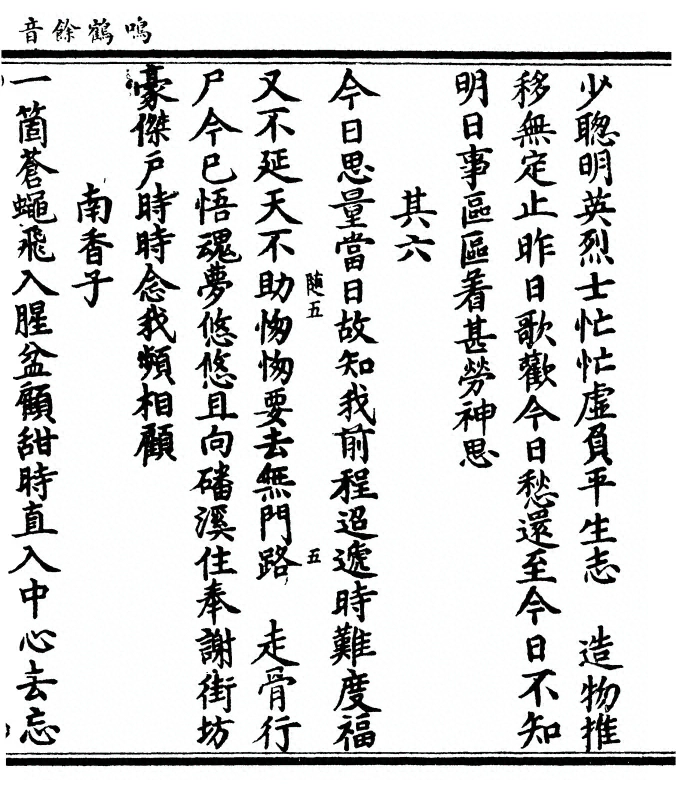 鳴鶴餘音
少聰明英烈士忙忙虛負平生志　造物推
移無定止昨日歌歡今日愁還至今日不知
明日事區區着甚勞神思
其六
今日思量當日故知我前程迢遞時難度福
随五　五
又不延天不助惚惚要去無門路　走骨行
尸今已悟魂夢悠悠且向磻溪住奉謝街坊
豪傑戸時時念我頻相顧
南香子
一箇蒼蠅飛入腥盆顧甜時直入中心去忘